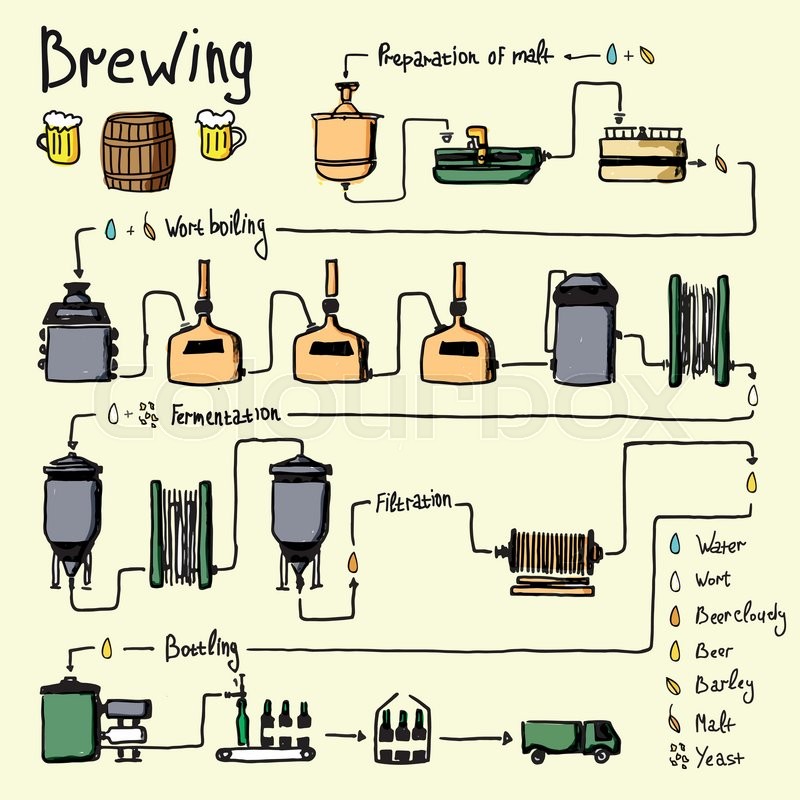 Brewing
Preparation of malt
+
+ Wort boiling
+ Fermentation
Filtration
Water
Wort
Beer cloudy
Beer
Barley
Malt
Yeast
Bottling
colourbox